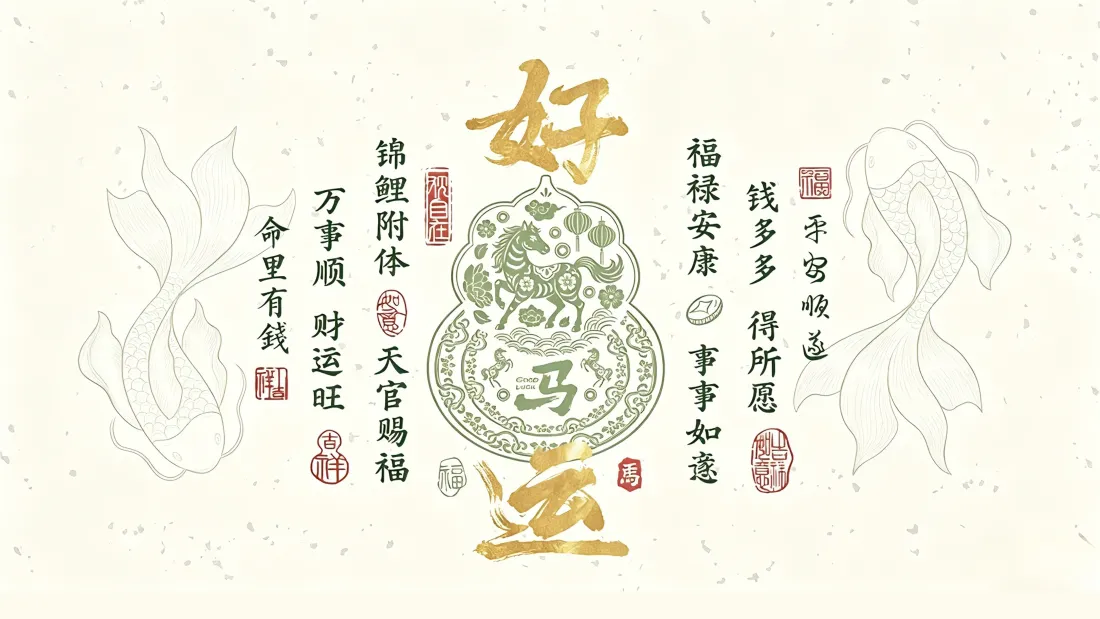 好
运
GOOD
LUCK
马
锦鲤附体
如意
天官赐福
万事顺 财运旺
吉祥
命里有錢
福禄安康
事事如意
钱多多 得所愿
吉祥如意
福
平安順遂
福
馬